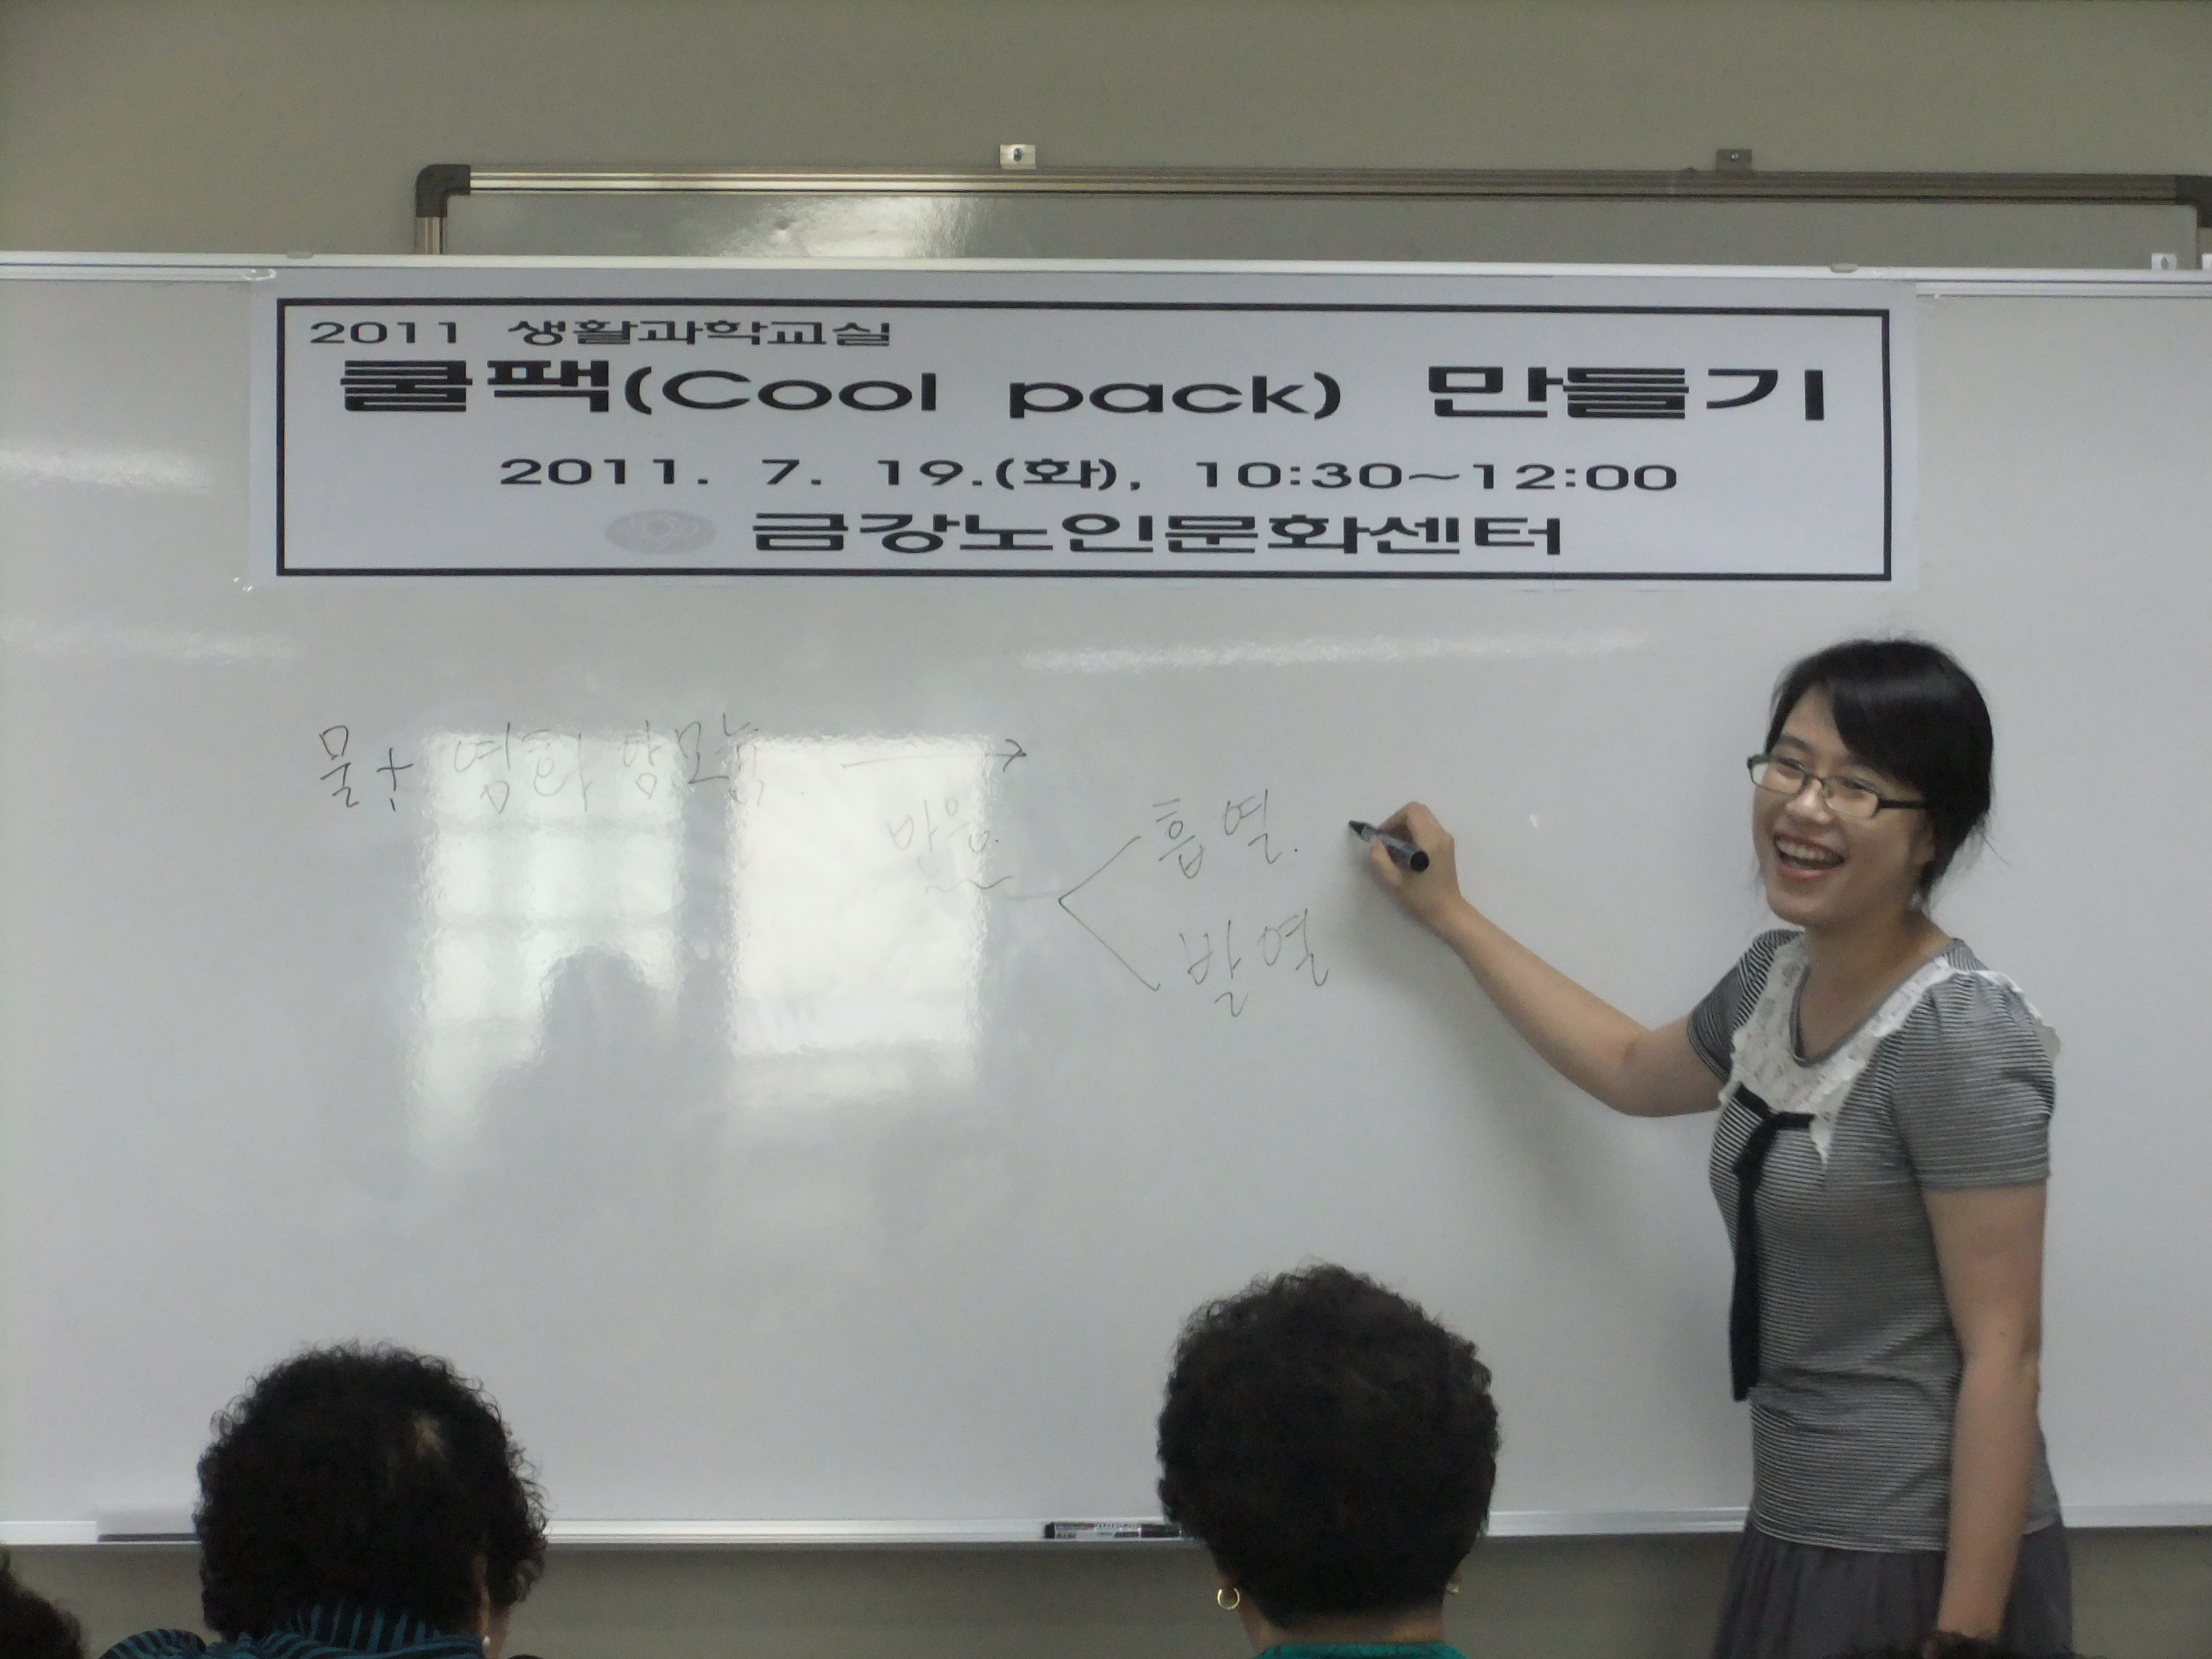 2011 생활과학교실
쿨팩(Cool pack) 만들기
2011. 7. 19.(화), 10:30~12:00
금강노인문화센터
물+ 염화 암모늄 →
반응
흡열.
발열